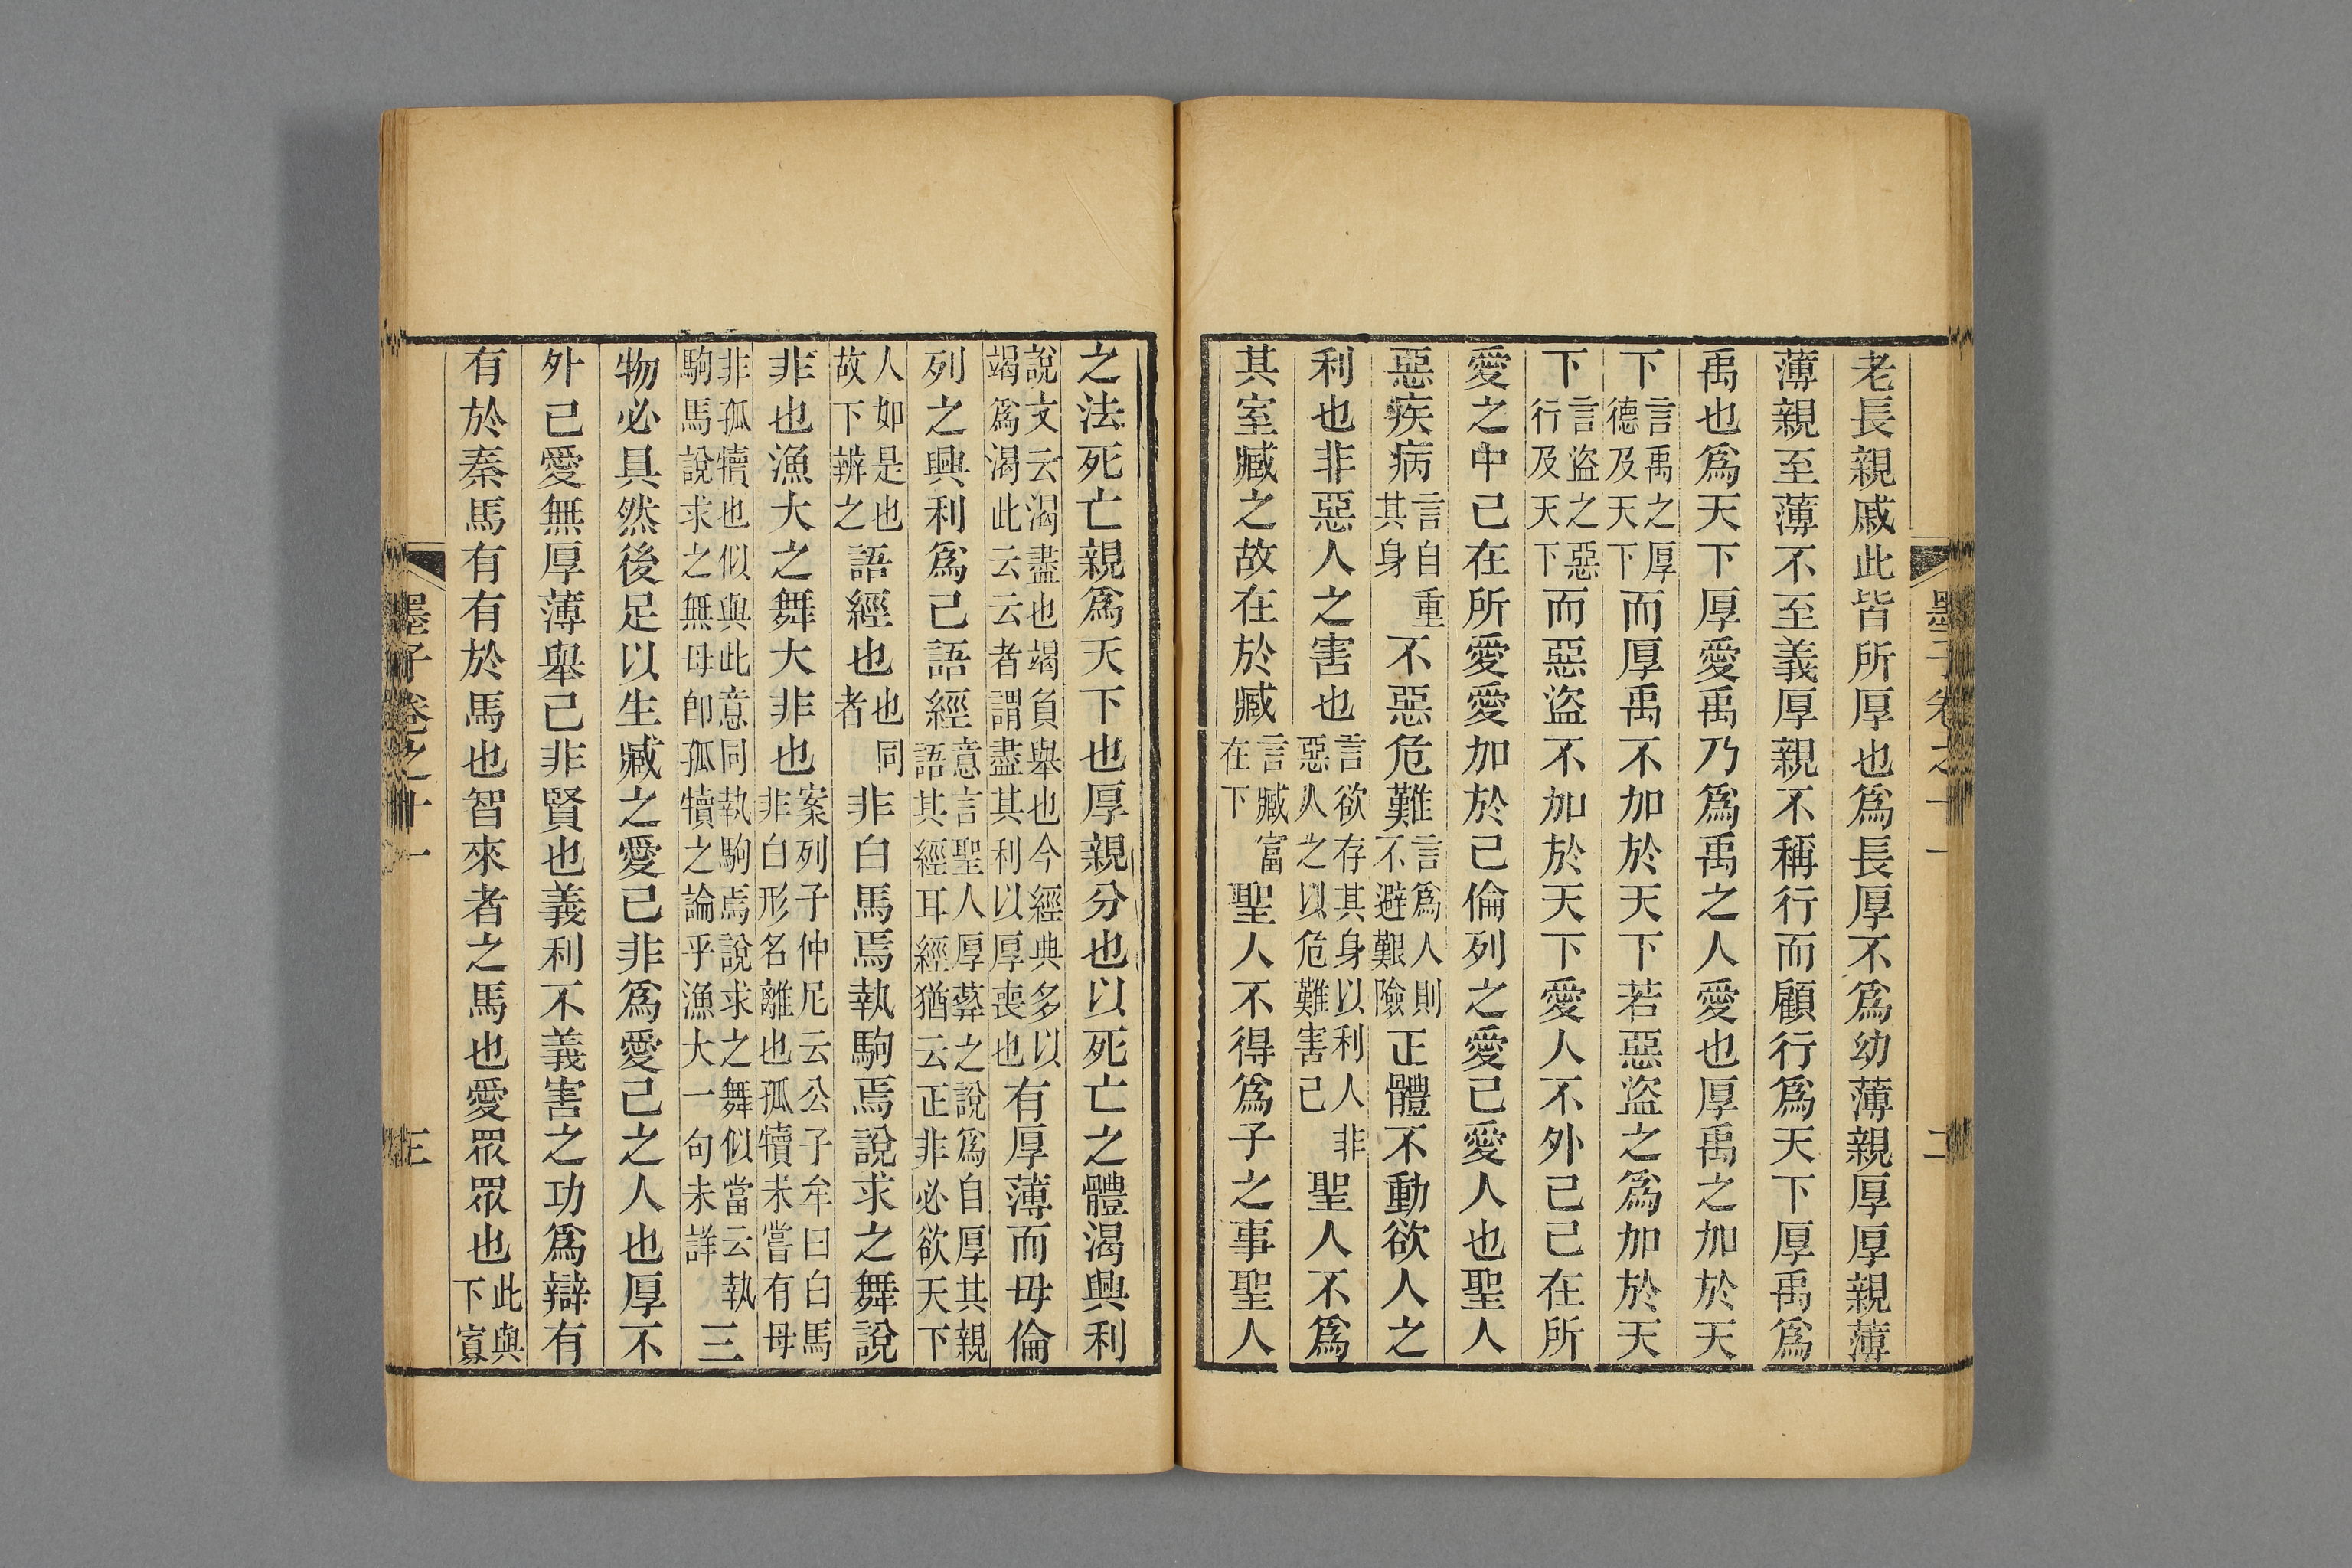 老長親戚此皆所厚也爲長厚不爲幼薄親厚厚親薄
薄親至薄不至義厚親不稱行而顧行爲天下厚禹爲
禹也爲天下厚愛禹乃爲禹之人愛也厚禹之加於天
下言禹之厚德及天下而厚禹不加於天下若惡盜之爲加於天
下言盜之惡行及天下而惡盜不加於天下愛人不外己己在所
愛之中己在所愛愛加於己倫列之愛己愛人也聖人
惡疾病言自重其身不惡危難言爲人則不避艱險正體不動欲人之
利也非惡人之害也言欲存其身以利人非惡人之以危難害己聖人不爲
其室臧之故在於臧言臧富在下聖人不得爲子之事聖人
墨子卷之十一
二
之法死亡親爲天下也厚親分也以死亡之體渴興利
說文云渴盡也竭負舉也今經典多以竭爲渴此云云者謂盡其利以厚喪也有厚薄而毋倫
列之興利爲己語經意言聖人厚葬之說爲自厚其親語其經耳經猶云正非必欲天下
人如是也故下辨之語經也也同者非白馬焉執駒焉說求之舞說
非也漁大之舞大非也案列子仲尼云公子牟曰白馬非白形名離也孤犢未嘗有母
非孤犢也似與此意同執駒焉說求之舞似當云執駒馬說求之無母即孤犢之論乎漁大一句未詳三
物必具然後足以生臧之愛己非爲愛己之人也厚不
外己愛無厚薄舉己非賢也義利不義害之功爲辯有
有於秦馬有有於馬也智來者之馬也愛眾眾也此與下寡
墨子卷之十一
三